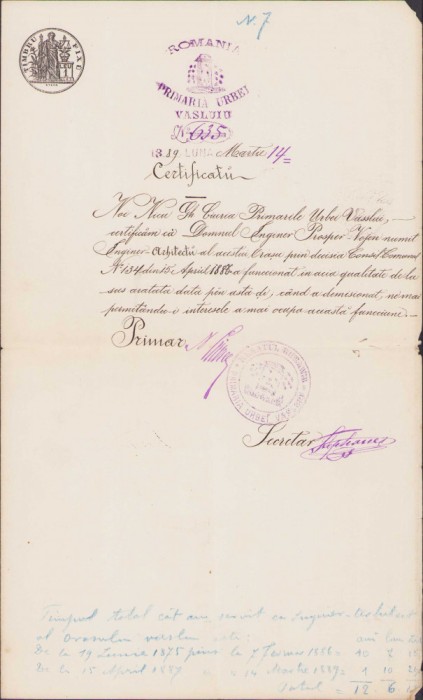 N. 7
TIMBRU FIX
ROMANIA
PRIMARIA URBEI
VASLUIU
No 635
1889 LUNA Martie 14
Certificatu
Noi Nicu Gh Ciurea Primarele Urbei Vaslui,
certificăm că Domnul Inginer Prosper numit
Inginer-Architect al acestui Orașe prin decisia Consil. Comunal
No 134 din 15 April 1886 a funcționat in acea qualitate de la
sus aratata data pîn asta di, când a demisionat, ne mai
permitându-i interesele a mai ocupa această funcțiune.
Primar
PRIMARIA URBEI VASLUI
Secretar
Timpul total cât am servit ca Inginer-Arhitect
al orasului Vaslui este: ani luni
De la 19 Iunie 1875 pănă la 7 1886 = 10 7
De la 15 April 1887 " " 14 Martie 1889 = 1 10
Total = 12 6